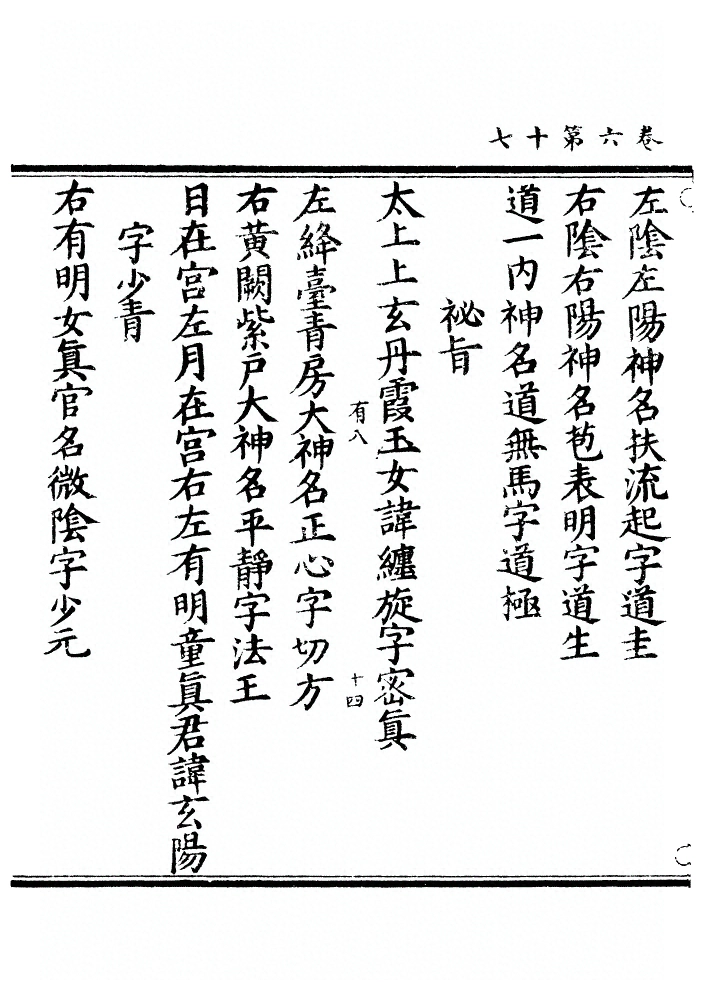 卷六第十七
左陰左陽神名扶流起字道圭
右陰右陽神名苞表明字道生
道一內神名道無馬字道極
祕旨
太上上玄丹霞玉女諱纏旋字密眞
有八
十四
左絳臺青房大神名正心字切方
右黃闕紫戶大神名平靜字法王
日在宮左月在宮右左有明童眞君諱玄陽
字少青
右有明女眞官名微陰字少元